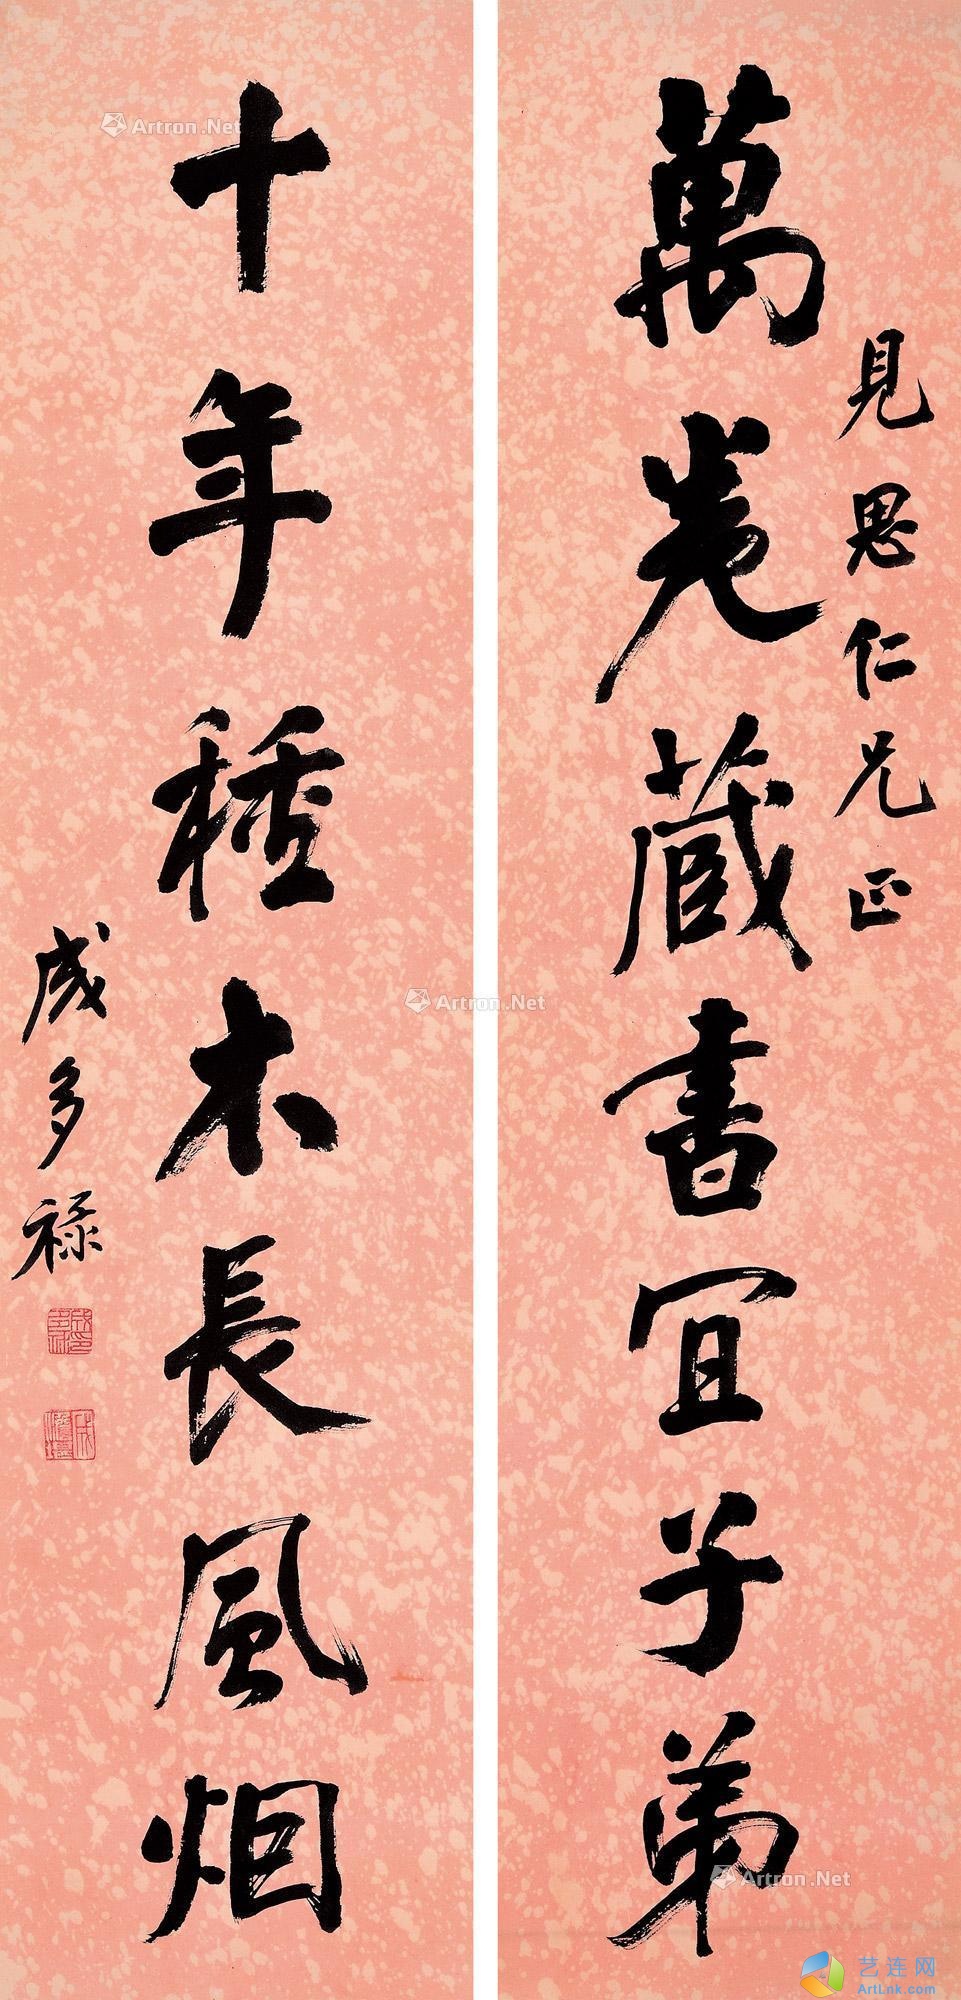 見思仁兄正
萬卷藏書宜子弟
十年種木長風烟
成多祿
Artron.Net
Artron.Net
Artron.Net
艺连网
ArtLnk.com